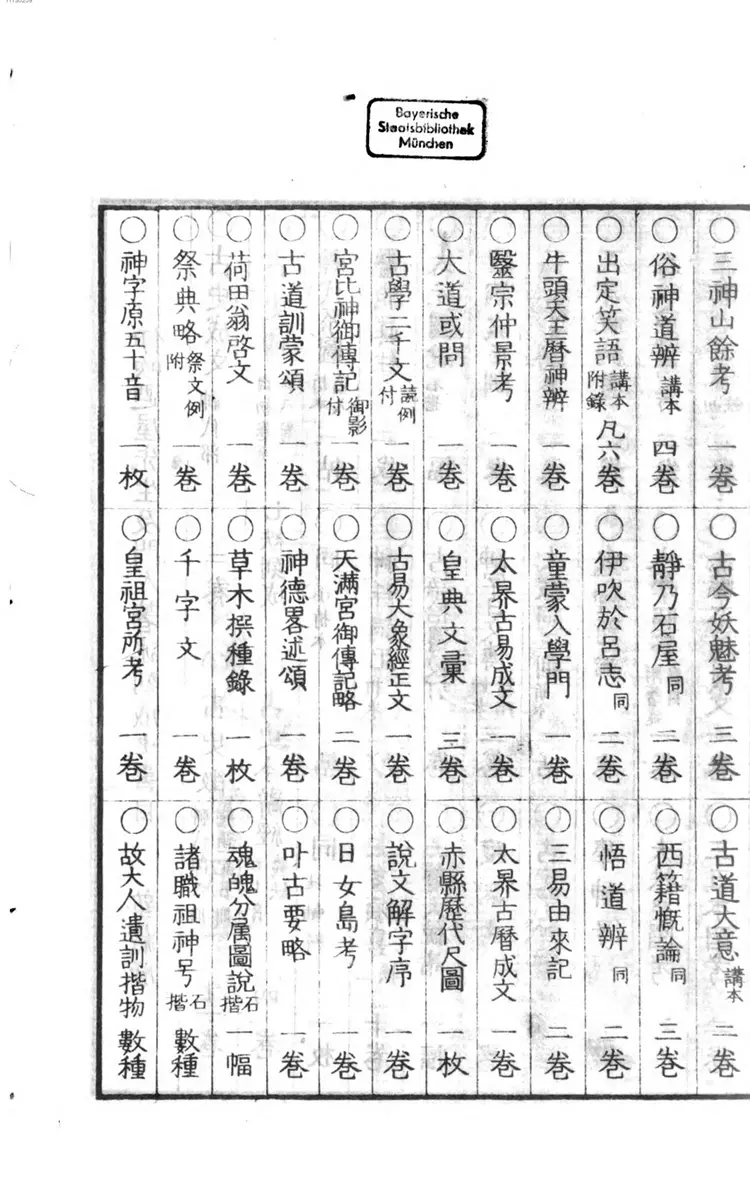 11130259
Bayerische
Staatsbibliothek
München
○三神山餘考 一巻 ○古今妖魅考 三巻 ○古道大意 講本 二巻
○俗神道辨 講本 四巻 ○靜乃石屋 同 二巻 ○西籍慨論 同 三巻
○出定笑語 講本附錄 凡六巻 ○伊吹於呂志 同 二巻 ○悟道辨 同 二巻
○牛頭天王曆神辨 一巻 ○童蒙入學門 一巻 ○三易由來記 二巻
○醫宗仲景考 一巻 ○太昦古易成文 一巻 ○太昦古曆成文 一巻
○大道或問 一巻 ○皇典文彙 三巻 ○赤縣歷代尺圖 一枚
○古學二千文 読例付 一巻 ○古易大象經正文 一巻 ○說文解字序 一巻
○宮比神御傳記 御影付 一巻 ○天滿宮御傳記略 二巻 ○日女島考 一巻
○古道訓蒙頌 一巻 ○神德畧述頌 一巻 ○叶古要略 一巻
○荷田翁啓文 一巻 ○草木撰種錄 一枚 ○魂魄分属圖說 石摺 一幅
○祭典略 祭文例附 一巻 ○千字文 一巻 ○諸職祖神号 石摺 數種
○神字原五十音 一枚 ○皇祖宮所考 一巻 ○故大人遺訓摺物 數種